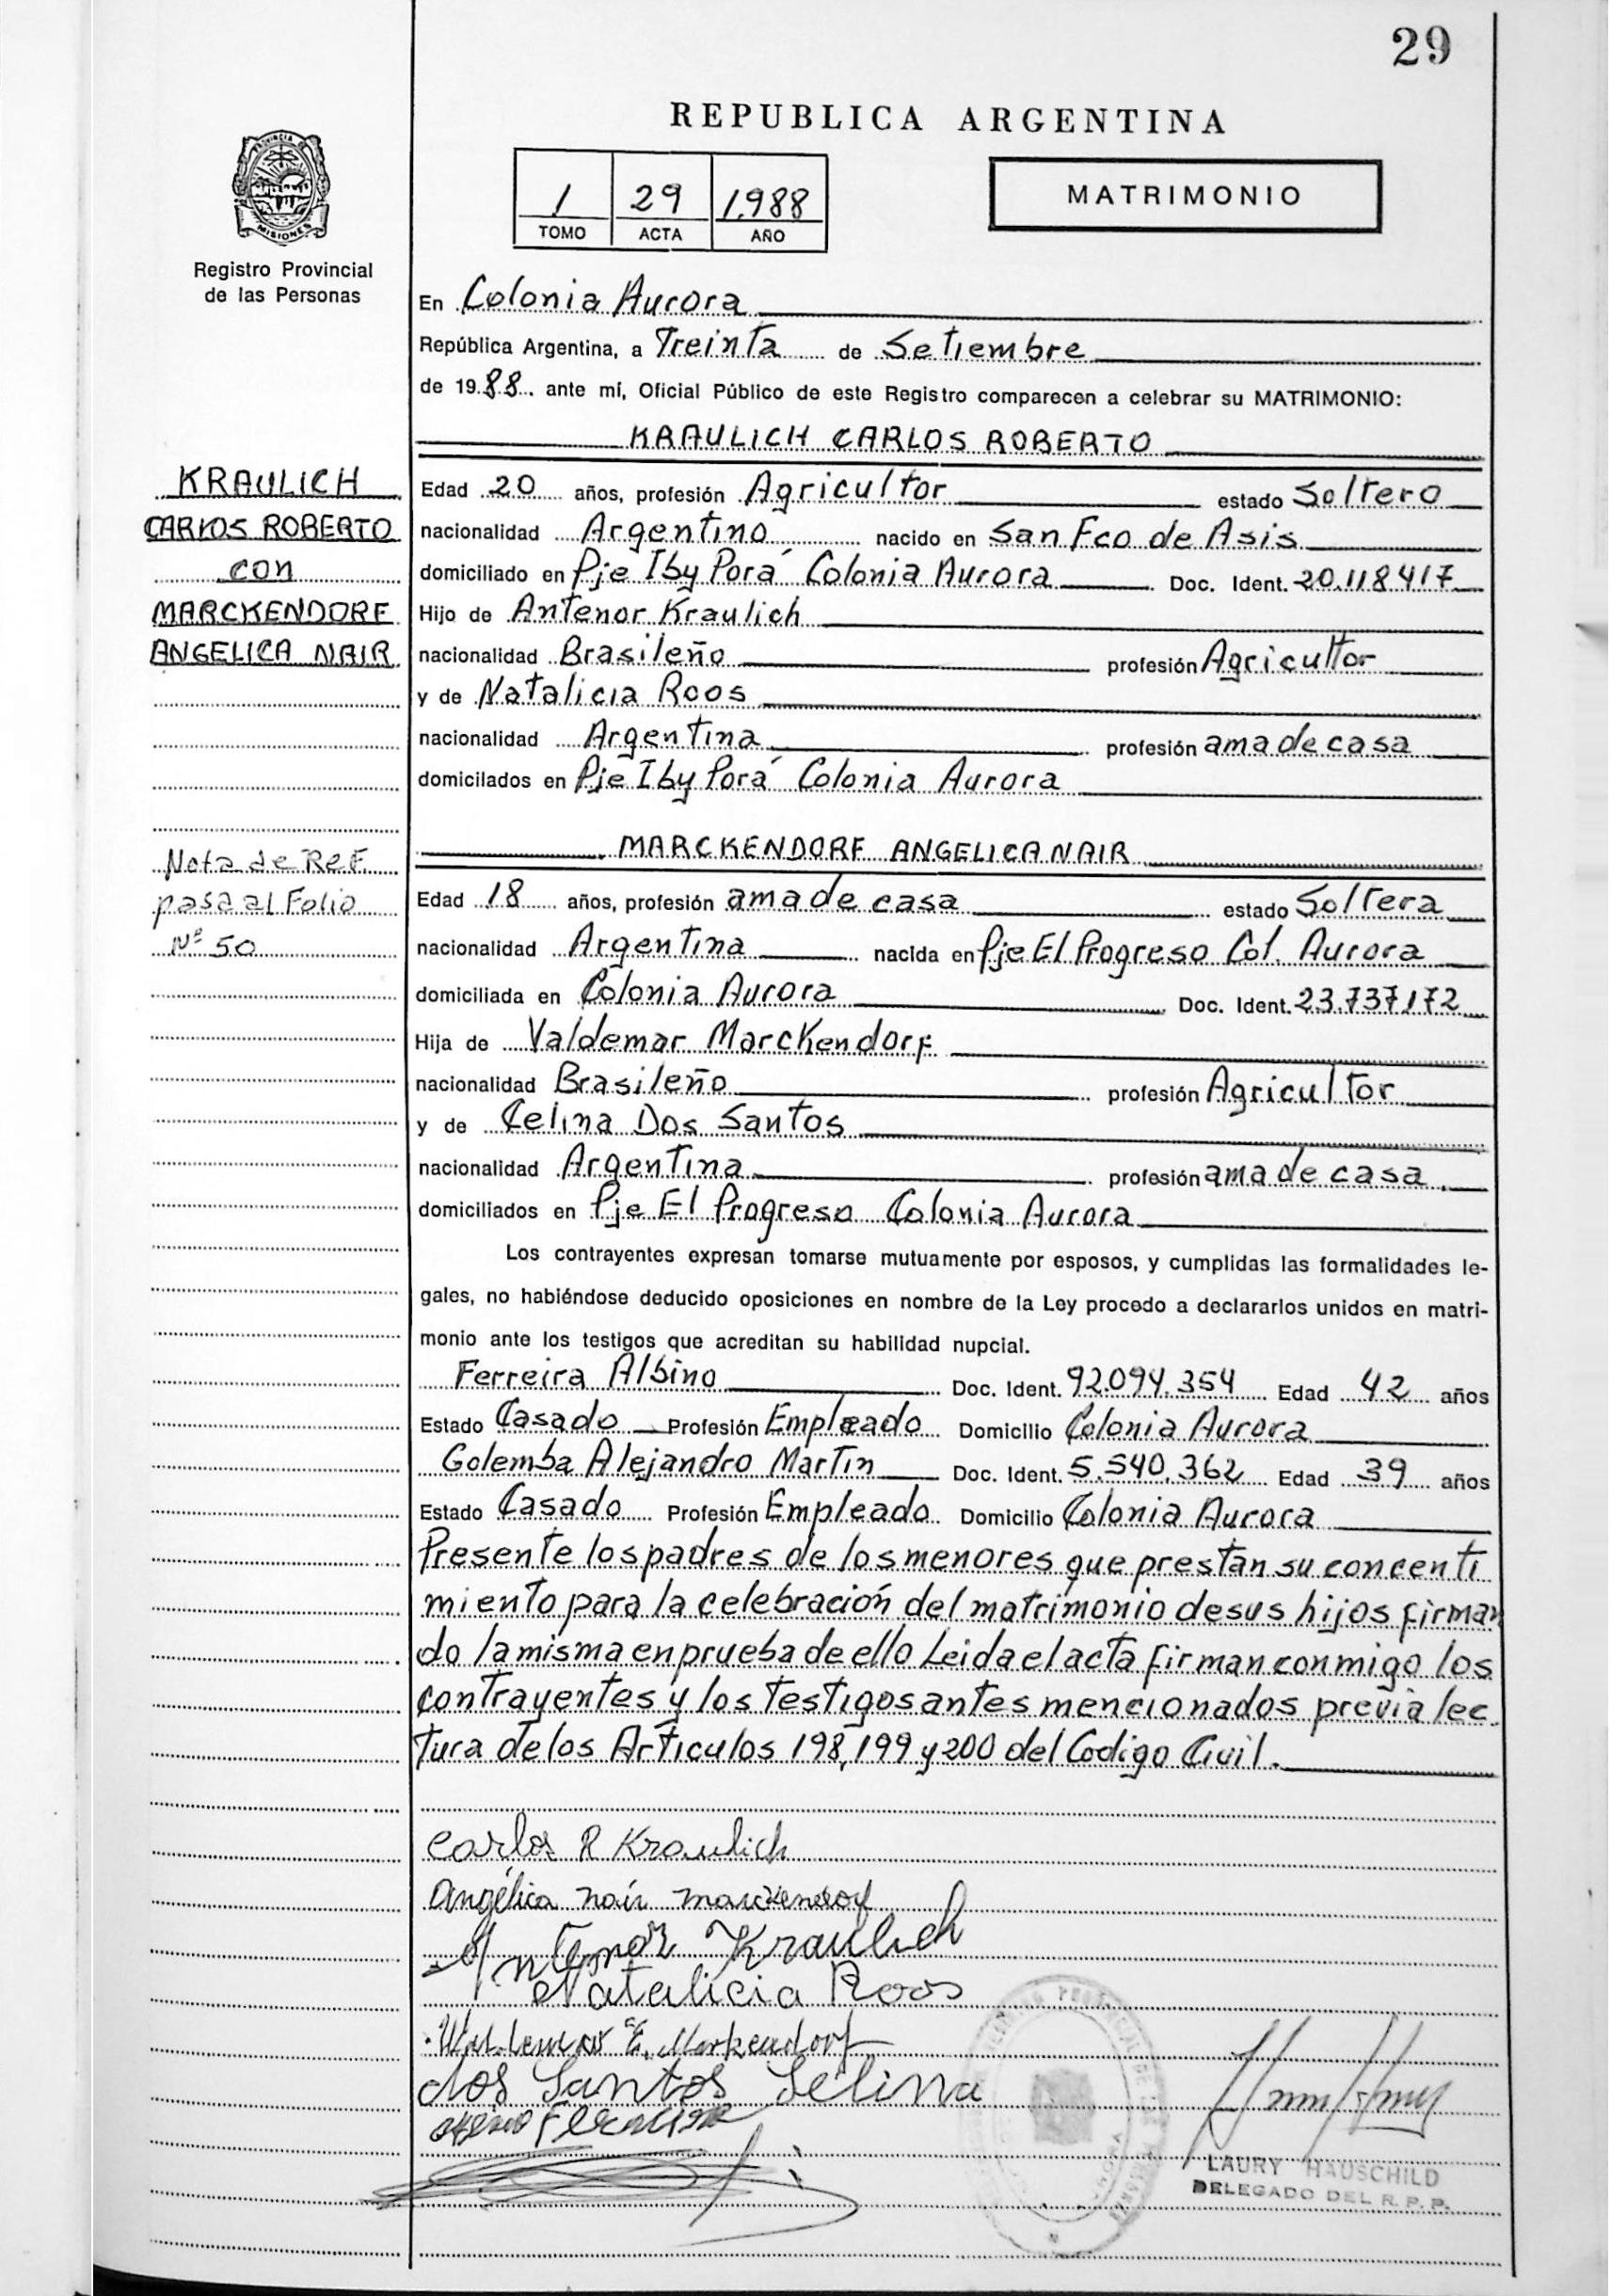 29
REPUBLICA ARGENTINA
1 29 1.988
TOMO ACTA AÑO
MATRIMONIO
PROVINCIA
MISIONES
Registro Provincial
de las Personas
En Colonia Aurora
República Argentina, a Treinta de Setiembre
de 19.88. ante mí, Oficial Público de este Registro comparecen a celebrar su MATRIMONIO:
KRAULICH CARLOS ROBERTO
KRAULICH
CARLOS ROBERTO
CON
MARCKENDORF
ANGELICA NAIR
Edad 20 años, profesión Agricultor estado Soltero
nacionalidad Argentino nacido en San Fco de Asis
domiciliado en Pje Iby Porá Colonia Aurora Doc. Ident. 20.118417
Hijo de Antenor Kraulich
nacionalidad Brasileño profesión Agricultor
y de Natalicia Roos
nacionalidad Argentina profesión ama de casa
domicilados en Pje Iby Porá Colonia Aurora
MARCKENDORF ANGELICA NAIR
Nota de Ref.
pasa al Folio
Nº 50
Edad 18 años, profesión ama de casa estado Soltera
nacionalidad Argentina nacida en Pje El Progreso Col. Aurora
domiciliada en Colonia Aurora Doc. Ident. 23.737.172
Hija de Valdemar Marckendorf
nacionalidad Brasileño profesión Agricultor
y de Celina Dos Santos
nacionalidad Argentina profesión ama de casa.
domiciliados en Pje El Progreso Colonia Aurora
Los contrayentes expresan tomarse mutuamente por esposos, y cumplidas las formalidades le-
gales, no habiéndose deducido oposiciones en nombre de la Ley procedo a declararlos unidos en matri-
monio ante los testigos que acreditan su habilidad nupcial.
Ferreira Albino Doc. Ident. 92.094.354 Edad 42 años
Estado Casado Profesión Empleado Domicilio Colonia Aurora
Golemba Alejandro Martin Doc. Ident. 5.540.362 Edad 39 años
Estado Casado Profesión Empleado Domicilio Colonia Aurora
Presente los padres de los menores que prestan su concenti
miento para la celebración del matrimonio de sus hijos firman
do la misma en prueba de ello Leida el acta firman conmigo los
contrayentes y los testigos antes mencionados previa lec.
tura de los Articulos 198, 199 y 200 del Codigo Civil.
Carlos R Kraulich
Angélica nair marckendorf
Antenor Kraulich
Natalicia Roos
Waldemar E. Markendorf
dos Santos Selina
Albino Ferreira
LAURY HAUSCHILD
DELEGADO DEL R. P. P.